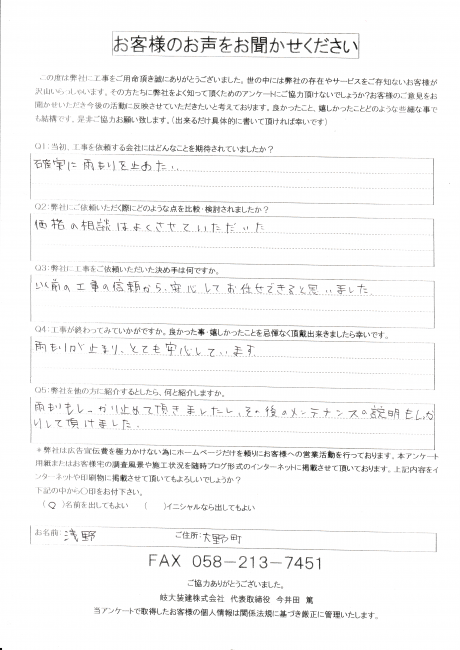 お客様のお声をお聞かせください
この度は弊社に工事をご用命頂き誠にありがとうございました。世の中には弊社の存在やサービスをご存知ないお客様が
沢山いらっしゃいます。その方たちに弊社をよく知って頂くためのアンケートにご協力頂けないでしょうか?お客様のご意見をお
聞かせいただき今後の活動に反映させていただきたいと考えております。良かったこと、嬉しかったことどのような些細な事で
も結構です、是非ご協力お願い致します。(出来るだけ具体的に書いて頂ければ幸いです)
Q1:当初、工事を依頼する会社にはどんなことを期待されていましたか?
確実に雨もりを止めたい
Q2:弊社にご依頼いただく際にどのような点を比較・検討されましたか?
価格の相談はよくさせていただいた
Q3:弊社に工事をご依頼いただいた決め手は何ですか。
以前の工事の信頼から、安心してお任せできると思いました
Q4:工事が終わってみていかがですか。良かった事・嬉しかったことを忌憚なく頂戴出来きましたら幸いです。
雨もりが止まり、とても安心しています
Q5:弊社を他の方に紹介するとしたら、何と紹介しますか。
雨もりもしっかり止めて頂きましたし、その後のメンテナンスの説明もしっか
りして頂けました
*弊社は広告宣伝費を極力かけない為にホームページだけを頼りにお客様への営業活動を行っております。本アンケート
用紙またはお客様宅の調査風景や施工状況を随時ブログ形式のインターネットに掲載させて頂いております。上記内容をイ
ンターネットや印刷物に掲載させて頂いてもよろしいでしょうか?
下記の中から○印をお付下さい。
(○)名前を出してもよい ( )イニシャルなら出してもよい
お名前: 浅野 ご住所: 大野町
FAX 058-213-7451
ご協力ありがとうございました。
岐大装建株式会社 代表取締役 今井田 篤
当アンケートで取得したお客様の個人情報は関係法規に基づき厳正に管理いたします。